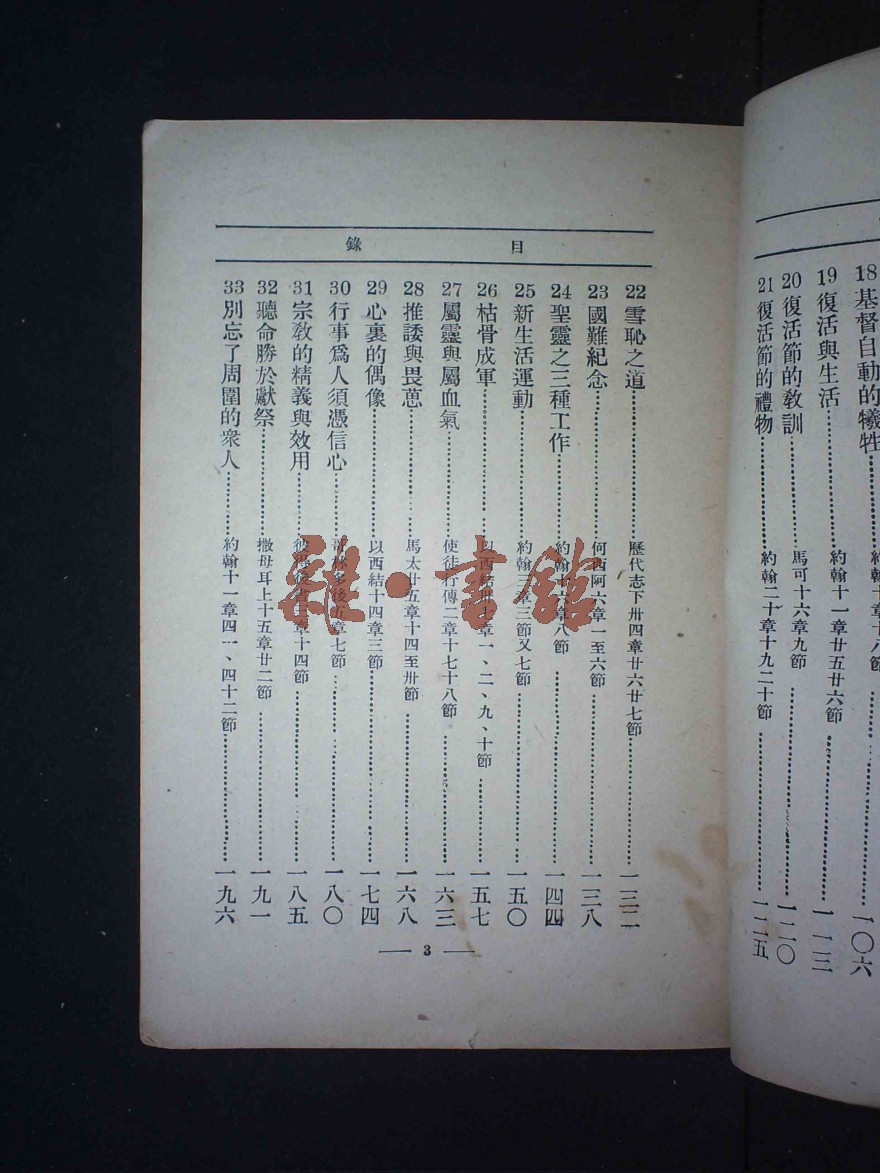 18 基督自動的犧牲 約翰十章十八節 一〇六
19 復活與生活 約翰十一章廿五廿六節 一一三
20 復活節的教訓 馬可十六章九節 一二〇
21 復活節的禮物 約翰二十章十九二十節 一二五
目錄
22 雪恥之道 歷代志下卅四章廿六廿七節 一三二
23 國難紀念 何西阿六章一至六節 一三八
24 聖靈之三種工作 約翰十六章八節 一四四
25 新生活運動 約翰三章三節又七節 一五〇
26 枯骨成軍 以西結卅七章一、二、九、十節 一五七
27 屬靈與屬血氣 使徒行傳二章十七十八節 一六三
28 推諉與畏葸 馬太廿五章十四至卅節 一六八
29 心裏的偶像 以西結十四章三節 一七四
30 行事爲人須憑信心 哥林多後五章七節 一八〇
31 宗教的精義與效用 章十四節 一八五
32 聽命勝於獻祭 撒母耳上十五章廿二節 一九一
33 別忘了周圍的衆人 約翰十一章四一、四十二節 一九六
3
雜·書館